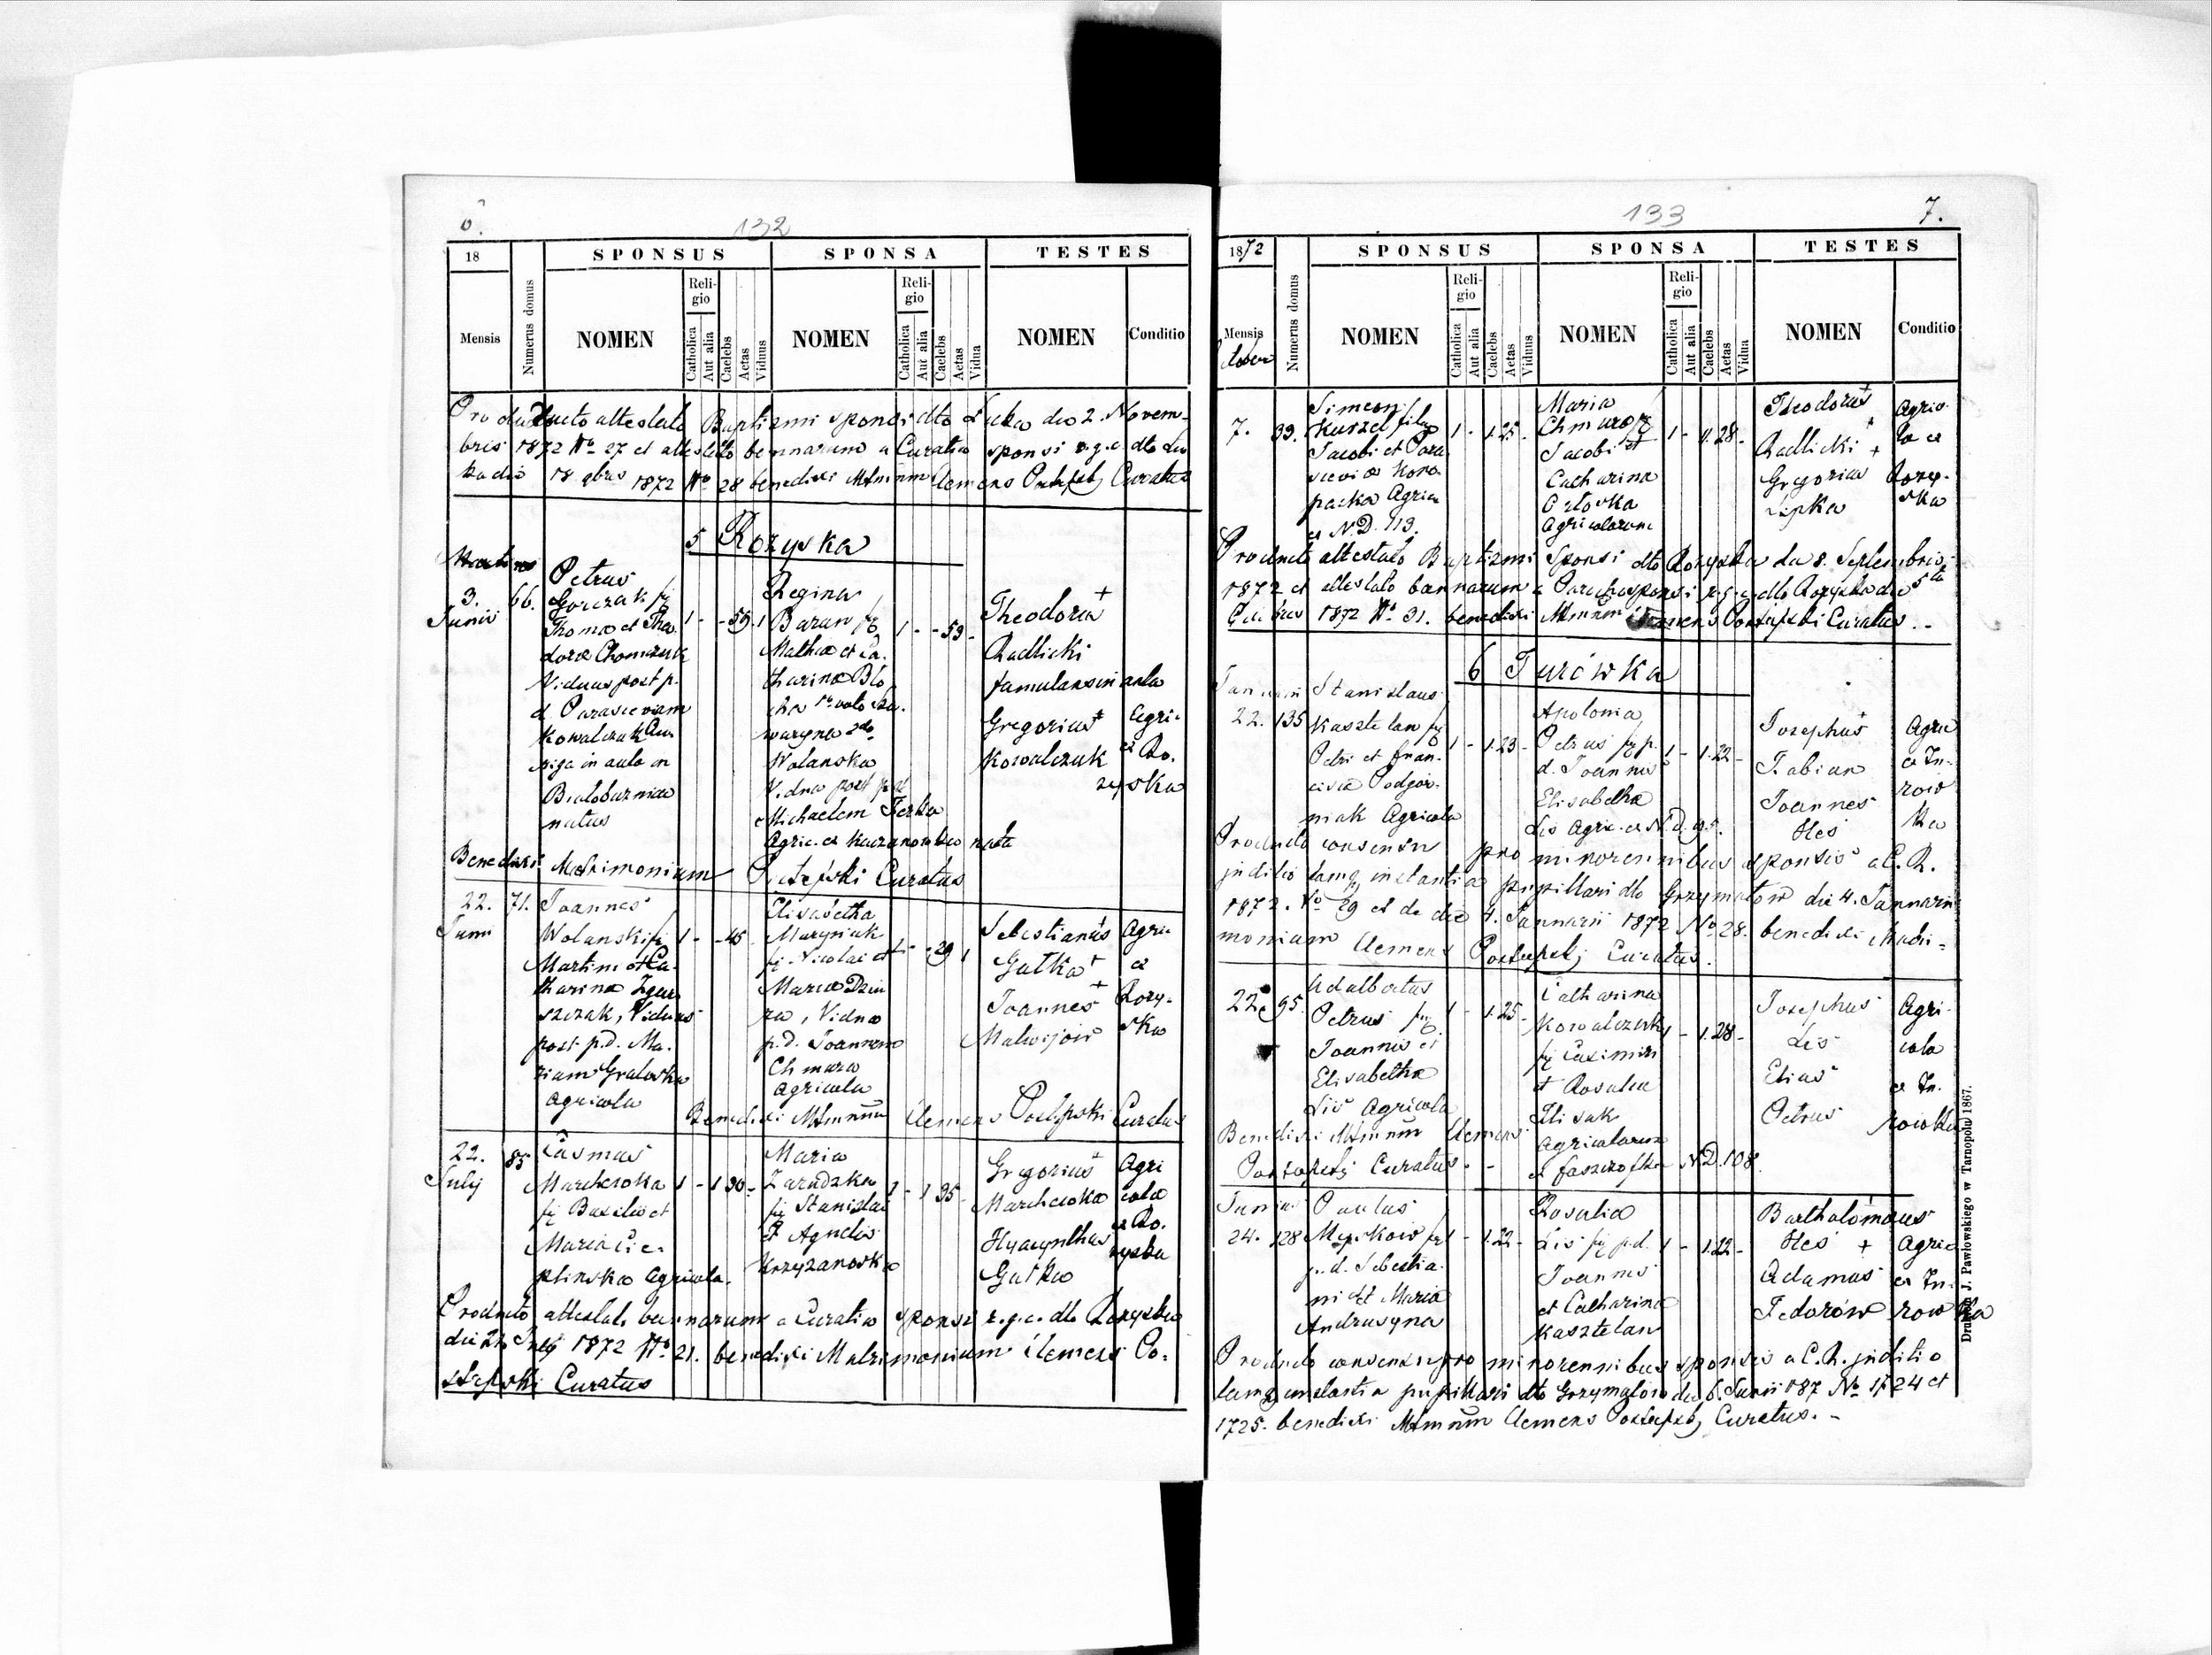 6.
132
18
SPONSUS
SPONSA
TESTES
Mensis
Numerus domus
NOMEN
Religio
Catholica
Aut alia
Caelebs
Aetas
Viduus
NOMEN
Religio
Catholica
Aut alia
Caelebs
Aetas
Vidua
NOMEN
Conditio
Producto attestato Baptismi sponsi dto Luka die 2. Novem-
bris 1872 No 27 et attestato bannorum a Curatio sponsi r.g.c. dto Lu
ka die 18 9bris 1872 No 28 benedixi Mtmnm Clemens Curatus
5 Rożyska
3. Junii
66.
Petrus
Gorczak fil
Thomæ et Theo
doræ Chomczuk
Viduus post p.
d. Parasceviam
Kowalczuk Au
riga in aula in
Białobożnica
natus
1 - - 59. 1
Regina
Baran
Mathiæ et Ca.
tharinæ Blo
cha 1o voto Sza
waryna 2do
Wolanska
Vidua post p d
Michaelem Ferka
Agric. ex Kaczanowka nata
1 - - 53 -
Theodorus +
Radlicki
famulans in aula
Gregorius +
Kowalczuk
Agri-
ex Ro.
zyska
Benedixi Matrimonium Postępski Curatus
22.
Junii
71.
Joannes
Wolanski fil
Martini et Ca
tharinæ Zgar
szczak, Viduus
post p.d. Ma.
riam Graloska
agricola
1 - - 45
Elisabetha
Maryniak
fil Nicolai et
Mariæ Dziu
ra, Vidua
p.d. Joannem
Chmara
agricola
1 - - 29 1
Sebestianus
Gułka +
Joannes +
Malwijow
Agric
ex
Rozy-
ska
Benedixi Mtmnum Clemens Postępski Curatus
22.
Julij
85
Casmus
Marchewka
fil Basilii et
Maria Cie-
plinska Agricola.
1 - 1 30 -
Maria
Zarudzka
fil Stanislai
et Agnelis
Krzyzanowska
1 - 1 35 -
Gregorius +
Marchewka
Hyacynthus
Gułka
Agri
cola
ex Ro.
zyska
Producto attestato bannorum a Curatio sponsi r.g.c. dto Rożyska
die 21 Julij 1872 No 21. benedixi Matrimonium Clemens Po-
stępski Curatus
133
7.
1872
SPONSUS
SPONSA
TESTES
Mensis
Numerus domus
NOMEN
Religio
Catholica
Aut alia
Caelebs
Aetas
Viduus
NOMEN
Religio
Catholica
Aut alia
Caelebs
Aetas
Vidua
NOMEN
Conditio
7.
39.
Simeon
Kuszel filg
Jacobi et Para
sceviæ Koro
packa Agric
ex N.D. 113.
1 - 1.25 -
Maria
Chmara fil
Jacobi et
Catharina
Orłoska
Agricolarum
1 - 1.28 -
Theodorus +
Radlicki +
Gregorius
Lipka
Agrico-
la ex
Rozy-
ska
Producto attestato Baptismi Sponsi dto Rożyska die 8. Septembris
1872 et attestato bannorum a Parocho sponsi r.g.c. dto Rożyska die 5ta
1872 No 31. benedixi Mtmnum Clemens Postępski Curatus. -
6 Turówka
Januarii
22.
135
Stanislaus
Kasztelan fil
Petri et Fran-
cisca Podgór-
niak Agricola
1 - 1.23 -
Apolonia
Petrus fil p.
d. Joannis
Elisabetha
Lis Agric. ex N.D. 95.
1 - 1.22 -
Josephus +
Fabian
Joannes
Hes
Agric
ex Tu-
row
ka
Producto consensu pro minorennibus sponsis a C.R.
juditio tamq instantia pupillari dto Grzymałow die 4. Januarii
1872. No 29 et de die 4. Januarii 1872 No 28. benedixi Matri-
monium Clemens Postępskj Curatus.
22
95.
Adalbertus
Petrus fil
Joannis et
Elisabetha
Lis Agricola
1 - 1.25 -
Catharina
Kowalczuk
fil Casimiri
et Rosalia
Elisak
Agricolarum
ex Faszczofka N.D. 108.
1 - 1.28 -
Josephus
Lis
Elias
Petrus
Agri-
cola
ex Tu-
rowka
Benedixi Mtmnum Clemens
Postępskj Curatus. -
Junii
24.
128
Paulus
Myskow fil
p.d. Sebestia-
ni et Maria
Andrusyna
1 - 1.22 -
Rosalia
Lis fil p.d.
Joannes
et Catharina
Kasztelan
1 - 1.22 -
Bartholomæus
Hes +
Adamus
Fedorów
Agric
ex Tu-
rowka
Producto consensu pro minorennibus sponsis a C.R. juditio
tamq instantia pupillari dto Grzymałow die 6. Junii 187 No 1724 et
1725. benedixi Mtmnum Clemens Postępskj Curatus. -
Drukiem J. Pawłowskiego w Tarnopolu 1867.